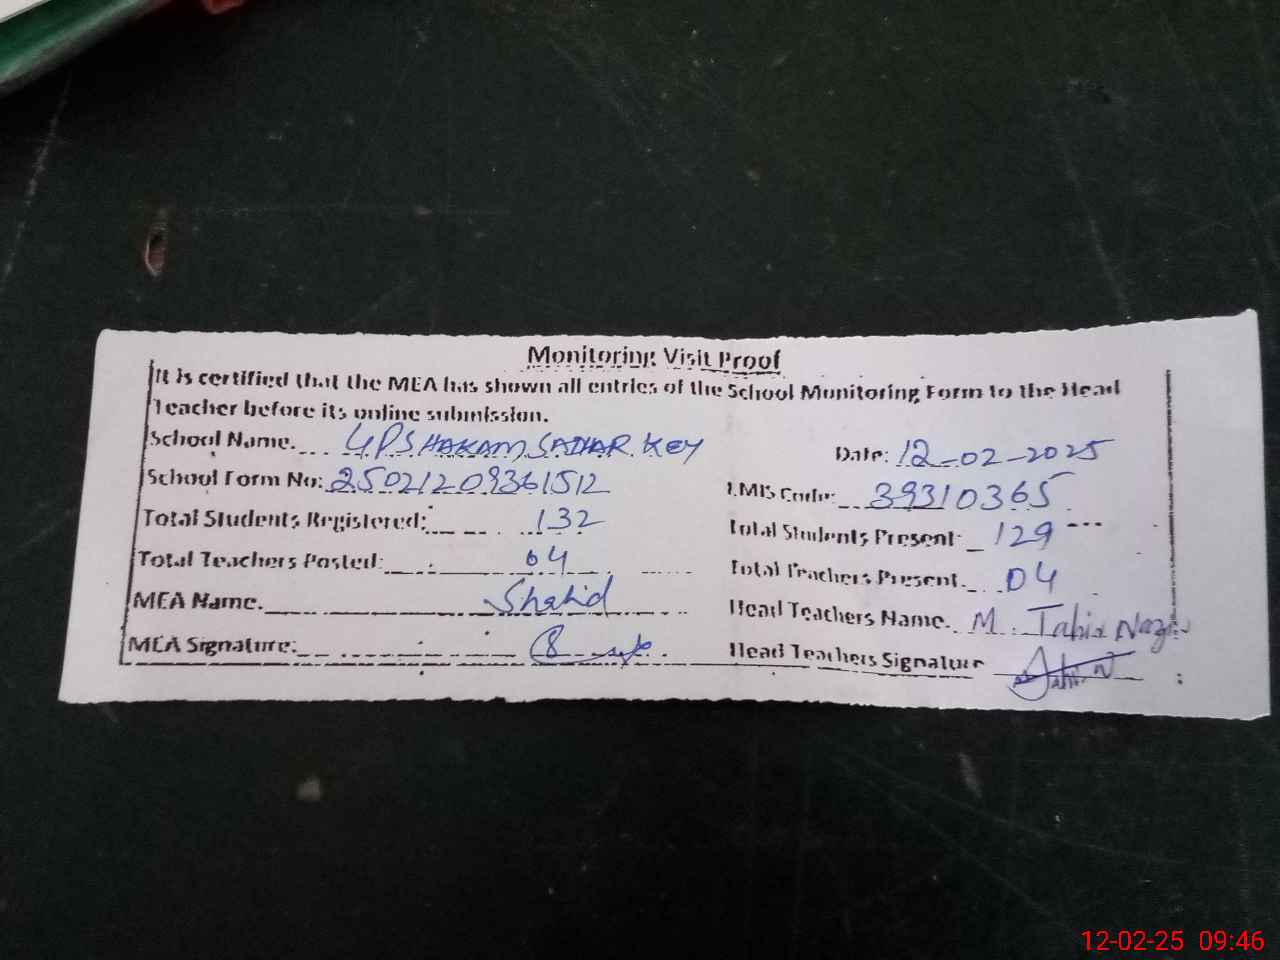 Monitoring Visit Proof
It is certified that the MEA has shown all entries of the School Monitoring Form to the Head
Teacher before its online submission.
School Name. GPS HAKAM SADHAR KEY Date: 12-02-2025
School Form No: 25021209361512 EMIS Code: 39310365
Total Students Registered: 132 Total Students Present: 129
Total Teachers Posted: 04 Total Teachers Present. 04
MEA Name. Shahid Head Teachers Name. M. Tahir
MEA Signature: Head Teachers Signature
12-02-25 09:46